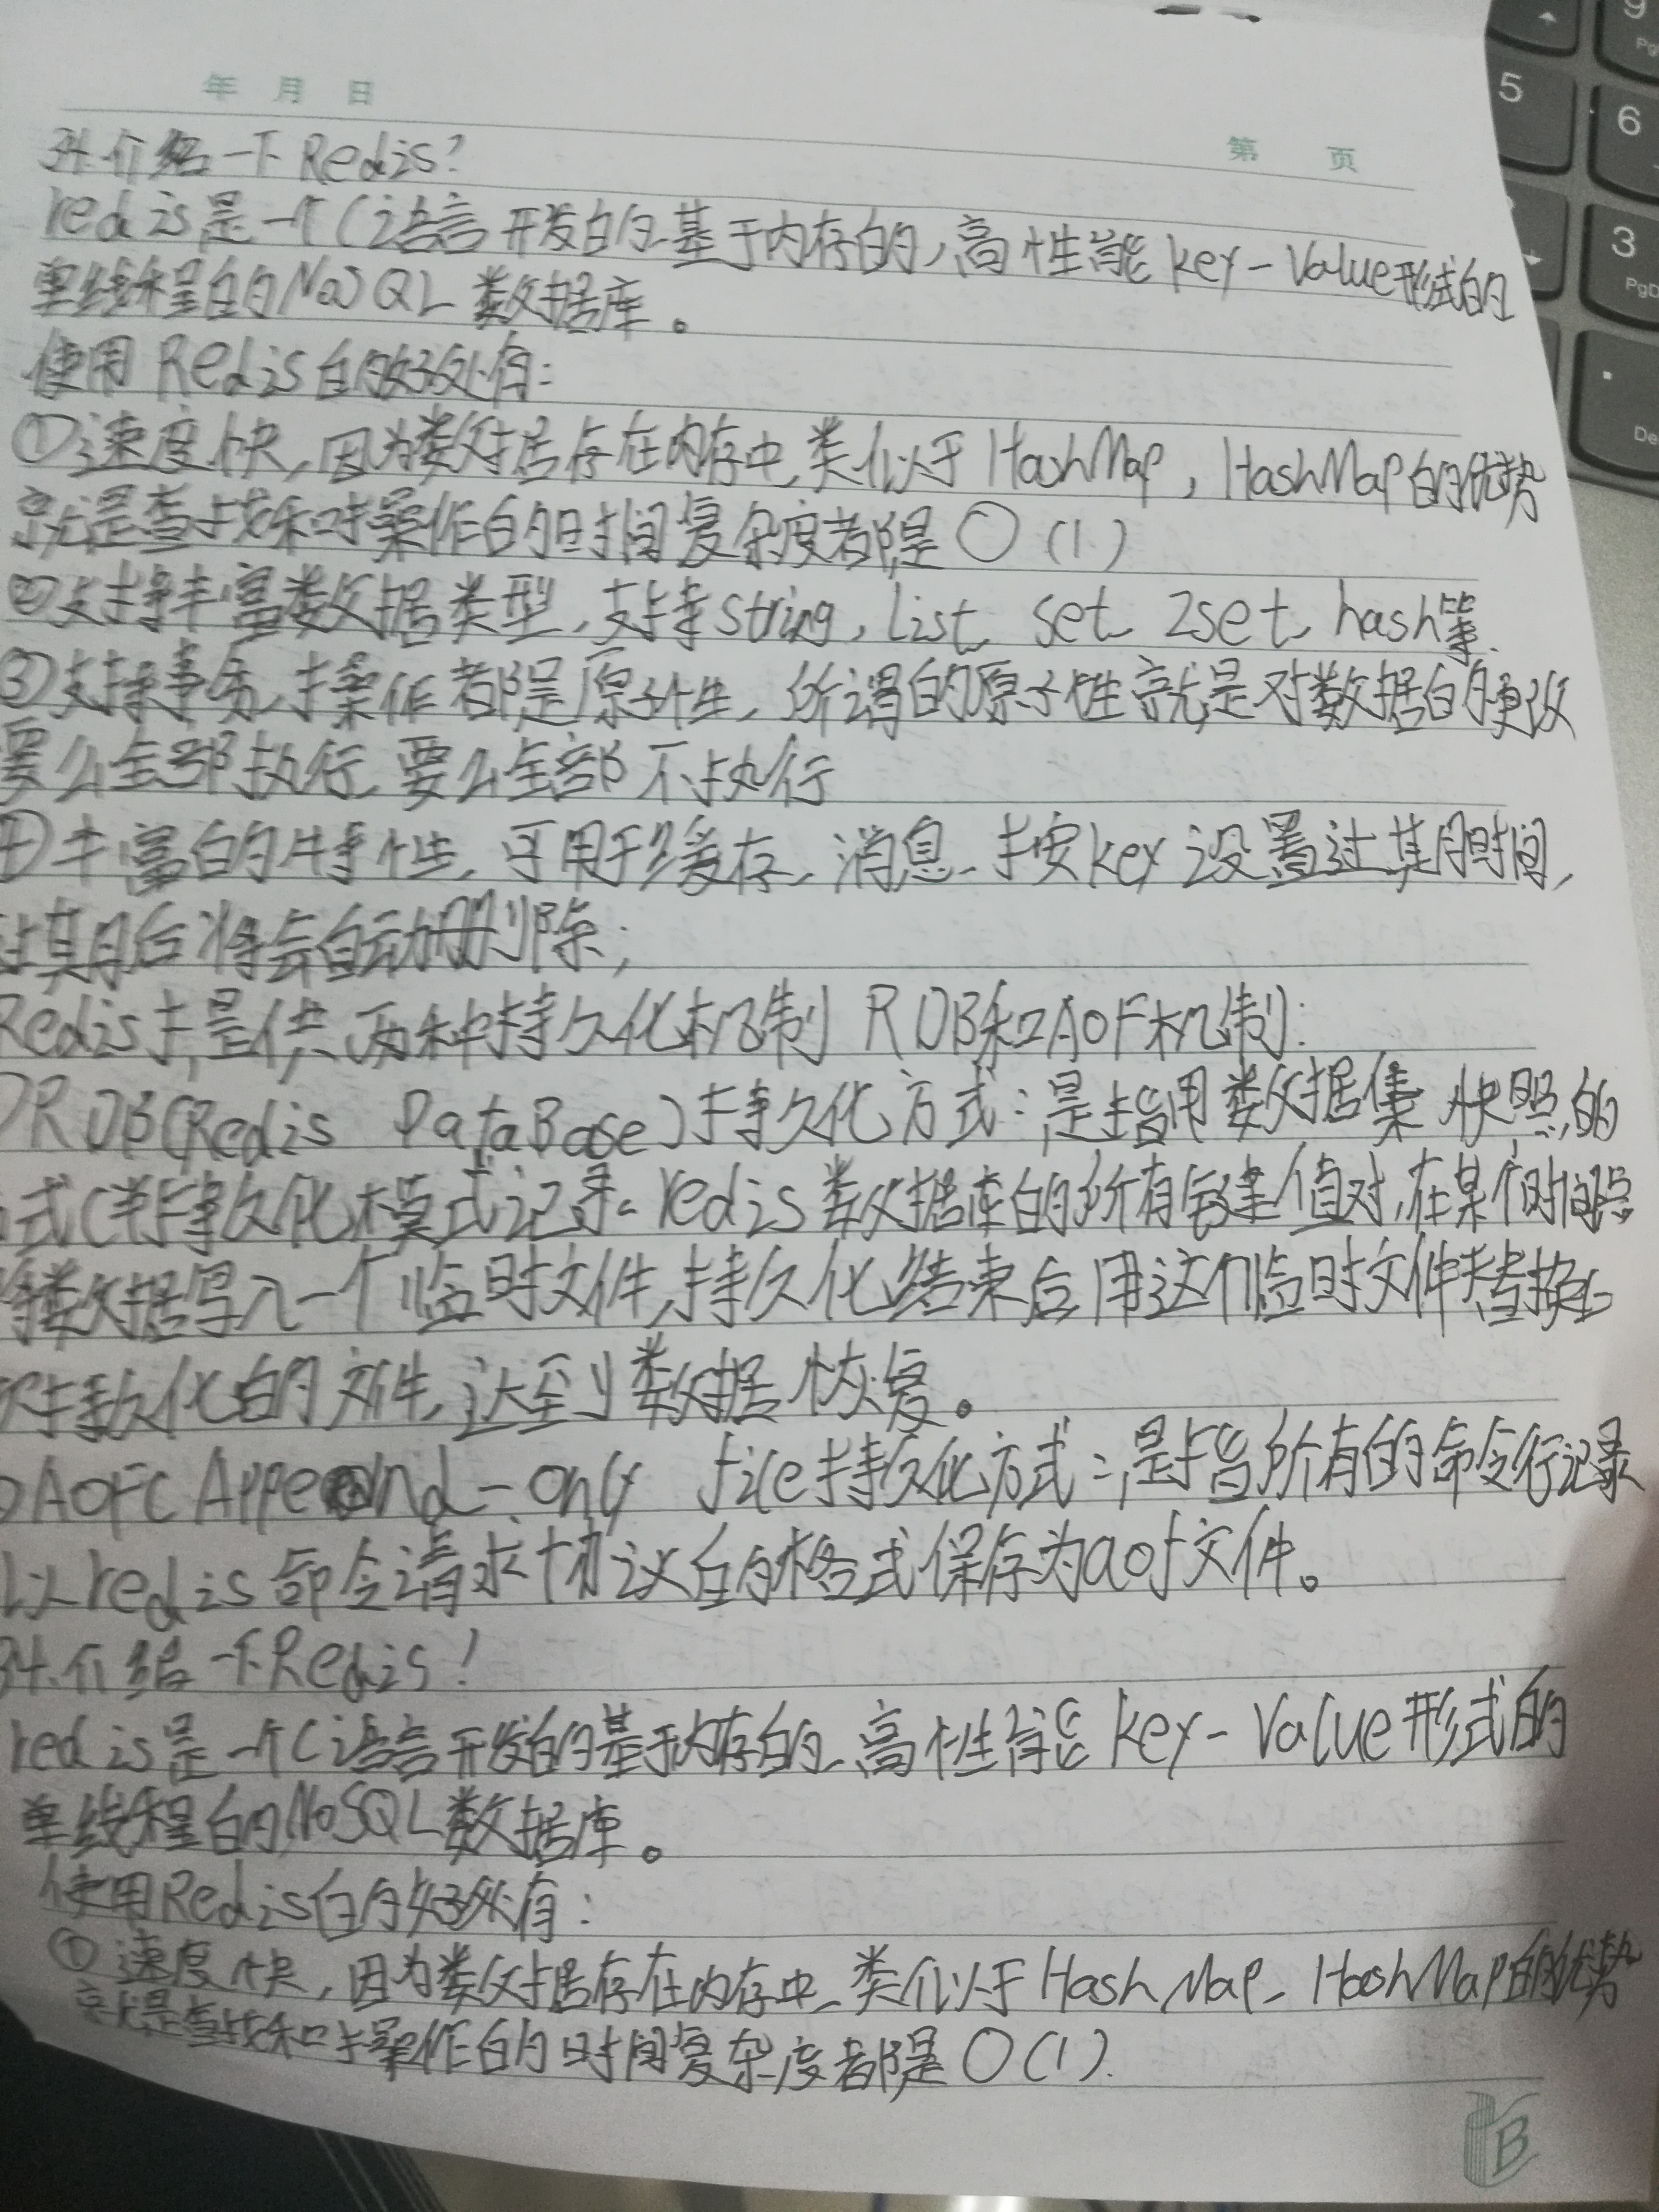 年 月 日
第 页
34.介绍一下Redis?
redis是一个C语言开发的基于内存的,高性能key-Value形式的
单线程的NoSQL数据库。
使用Redis的好处有:
①速度快,因为数据存在内存中,类似于HashMap,HashMap的优势
就是查找和操作的时间复杂度都是O(1)
②支持丰富数据类型,支持string,list,set,zset,hash等.
③支持事务,操作都是原子性,所谓的原子性就是对数据的更改
要么全部执行,要么全部不执行
④丰富的特性,可用于缓存,消息,按key设置过期时间,
过期后将会自动删除;
Redis提供两种持久化机制RDB和AOF机制:
RDB(Redis DataBase)持久化方式:是指用数据集快照的
式(半持久化模式记录redis数据库的所有键值对,在某个时间点
将数据写入一个临时文件,持久化结束后,用这个临时文件替换上
次持久化的文件,达到数据恢复。
AOF(Append-only file持久化方式:是指所有的命令行记录
以redis命令请求协议的格式保存为aof文件。
34.介绍一下Redis!
redis是一个C语言开发的基于内存的,高性能key-Value形式的
单线程的NoSQL数据库。
使用Redis的好处有:
①速度快,因为数据存在内存中,类似于HashMap,HashMap的优势
就是查找和操作的时间复杂度都是O(1).
B
5
6
3
9